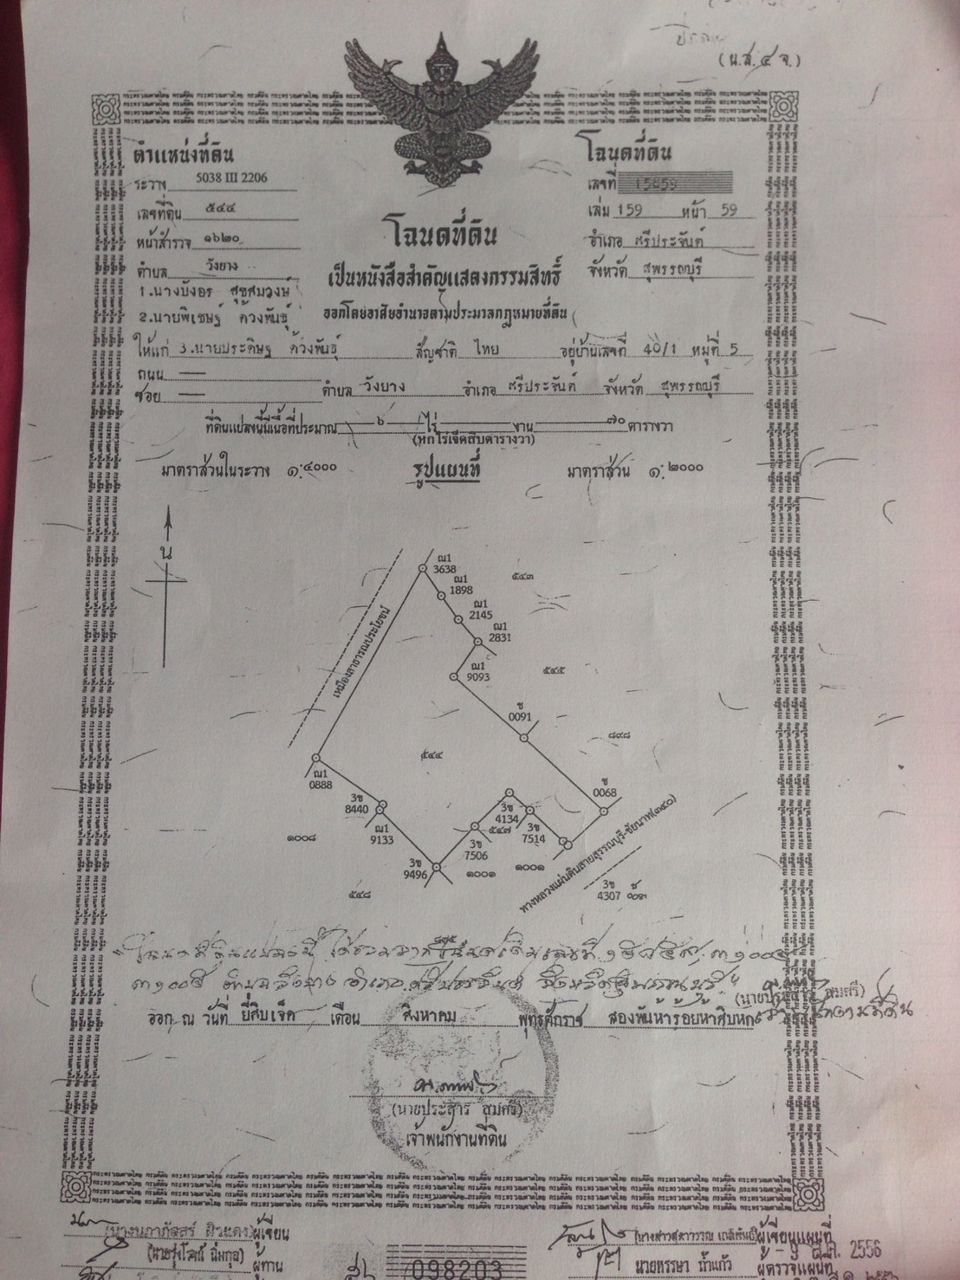 (น.ส. ๔ จ.)
ตำแหน่งที่ดิน
ระวาง 5038 III 2206
เลขที่ดิน ๕๔๔
หน้าสำรวจ ๑๖๒๐
ตำบล วังยาง
โฉนดที่ดิน
เลขที่ 15859
เล่ม 159 หน้า 59
อำเภอ ศรีประจันต์
จังหวัด สุพรรณบุรี
โฉนดที่ดิน
เป็นหนังสือสำคัญแสดงกรรมสิทธิ์
ออกโดยอาศัยอำนาจตามประมวลกฎหมายที่ดิน
1.นางบังอร สุขสมวงษ์
2.นายพิเชษฐ์ ด้วงพันธุ์
ให้แก่ 3.นายประดิษฐ ด้วงพันธุ์ สัญชาติ ไทย อยู่บ้านเลขที่ 40/1 หมู่ที่ 5
ถนน —
ซอย — ตำบล วังยาง อำเภอ ศรีประจันต์ จังหวัด สุพรรณบุรี
ที่ดินแปลงนี้มีเนื้อที่ประมาณ ๖ ไร่ — งาน ๗๐ ตารางวา
(หกไร่เจ็ดสิบตารางวา)
มาตราส่วนในระวาง ๑:๔๐๐๐ รูปแผนที่ มาตราส่วน ๑:๒๐๐๐
น
ฌ1
3638
๕๔๓
1898
ฌ1
2145
ฌ1
2831
เหมืองสาธารณประโยชน์
ฌ1
9093
๕๔๕
ช
0091
๘๙๘
๕๔๔
ฌ1
0888
ช
0068
3ข
8440
3ข
4134
ฌ1
9133
๕๔๗
3ข
7514
๑๐๐๘
3ข
7506
3ข
9496
๑๐๐๑
๑๐๐๑
ทางหลวงแผ่นดินสายสุรรณบุรี-ชัยนาท(๓๔๐)
๕๔๘
3ข
4307
ออก ณ วันที่ ยี่สิบเจ็ด เดือน สิงหาคม พุทธศักราช สองพันห้าร้อยห้าสิบหก
(นายประสาร สมศรี)
เจ้าพนักงานที่ดิน
ผู้เขียน
ผู้เขียนแผนที่
ผู้ทาน
นายหรรษา น้ำแก้ว ผู้ตรวจแผนที่
2556
098203